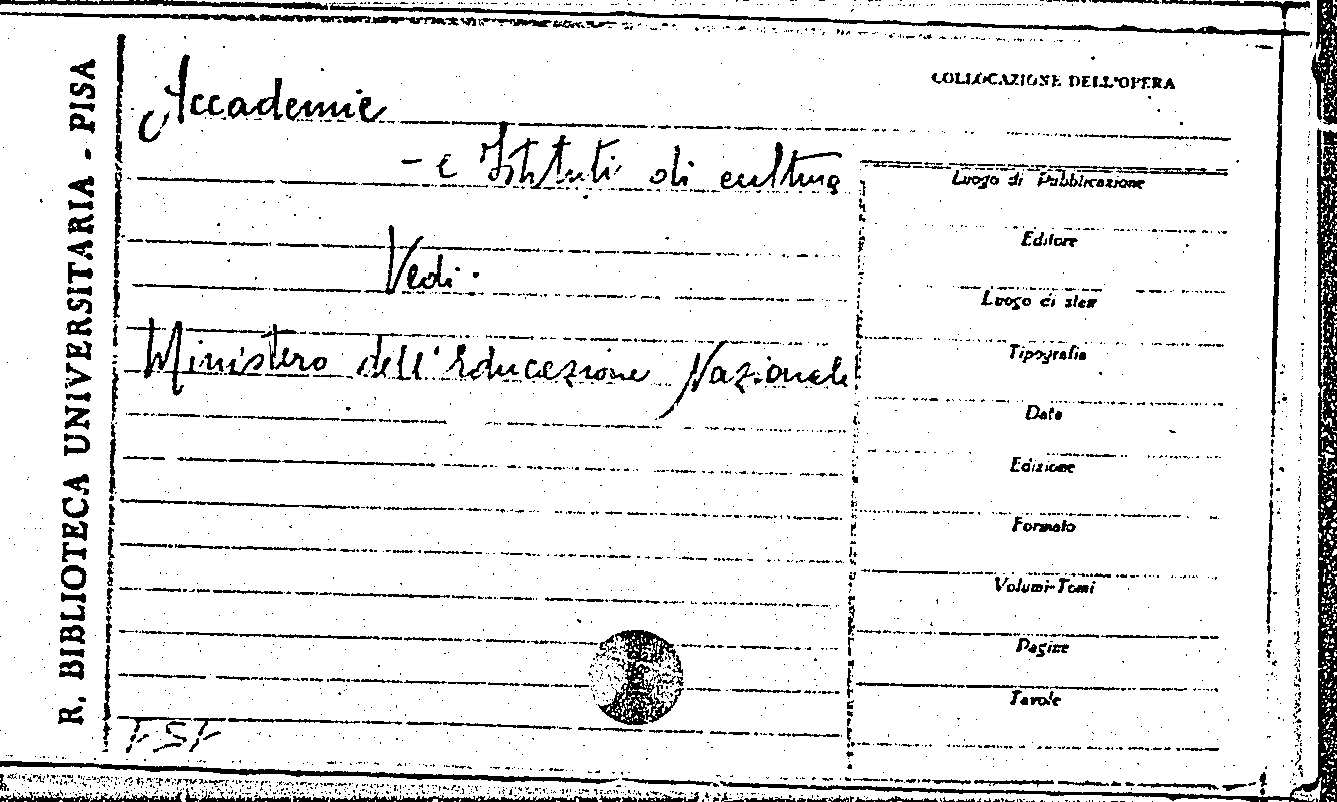 R. BIBLIOTECA UNIVERSITARIA - PISA
Accademie
- e Istituti di cultura
Vedi:
Ministero dell'Educazione Nazionale
COLLOCAZIONE DELL'OPERA
Luogo di Pubblicazione
Editore
Luogo di stam
Tipografia
Data
Edizione
Formato
Volumi-Tomi
Pagine
Tavole